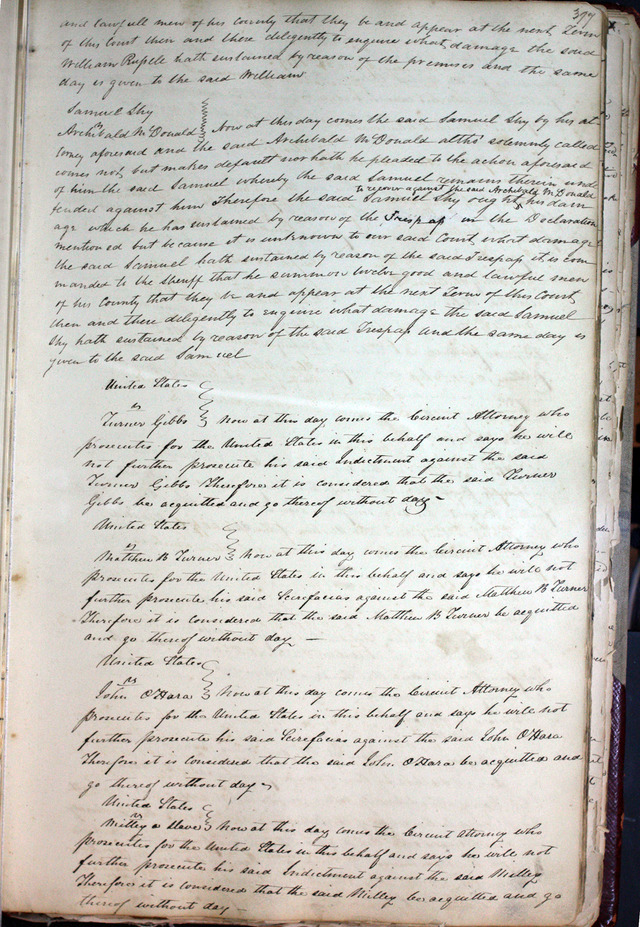 377
and lawfull men of his County that they be and appear at the next Term
of this Court then and there deligently to enquire what damage the said
William Rupele hath sustained by reason of the premises and the same
day is given to the said William
Samuel Shy
vs
Archibald McDonald Now at this day comes the said Samuel Shy by his at
torney aforesaid and the said Archibald McDonald altho' solemnly called
comes not, but makes default nor hath he pleaded to the action aforesaid
of him the said Samuel whereby the said Samuel remains therein unde
fended against him Therefore the said Samuel Shy ought to recover against the said Archibald McDonald his dam
age which he has sustained by reason of the Trespap in the Declaration
mentioned but because it is unknown to our said Court, what damage
the said Samuel hath sustained by reason of the said Trespap it is com
manded to the Sheriff that he summon twelve good and lawful men
of his County that they be and appear at the next Term of this Court,
then and there deligently to enquire what damage the said Samuel
Shy hath sustained by reason of the said Trespap and the same day is
given to the said Samuel
United States
vs
Turner Gibbs Now at this day comes the Circuit Attorney who
prosecutes for the United States in this behalf and says he will
not further prosecute his said Indictment against the said
Turner Gibbs Therefore it is considered that the said Turner
Gibbs be acquitted and go thereof without day
United States
vs
Matthew B Turner Now at this day comes the Circuit Attorney who
prosecutes for the United States in this behalf and says he will not
further prosecute his said Scirefacias against the said Matthew B Turner
Therefore it is considered that the said Matthew B Turner be acquitted
and go thereof without day —
United States
vs
John O'Hara Now at this day comes the Circuit Attorney who
prosecutes for the United States in this behalf and says he will not
further prosecute his said Scirefacias against the said John O'Hara
Therefore it is considered that the said John O'Hara be acquitted and
go thereof without day
United States
vs
Milley a Slave Now at this day comes the Circuit Attorney who
prosecutes for the United States in this behalf and says he will not
further prosecute his said Indictment against the said Milley
Therefore it is considered that the said Milley be acquitted and go
thereof without day —